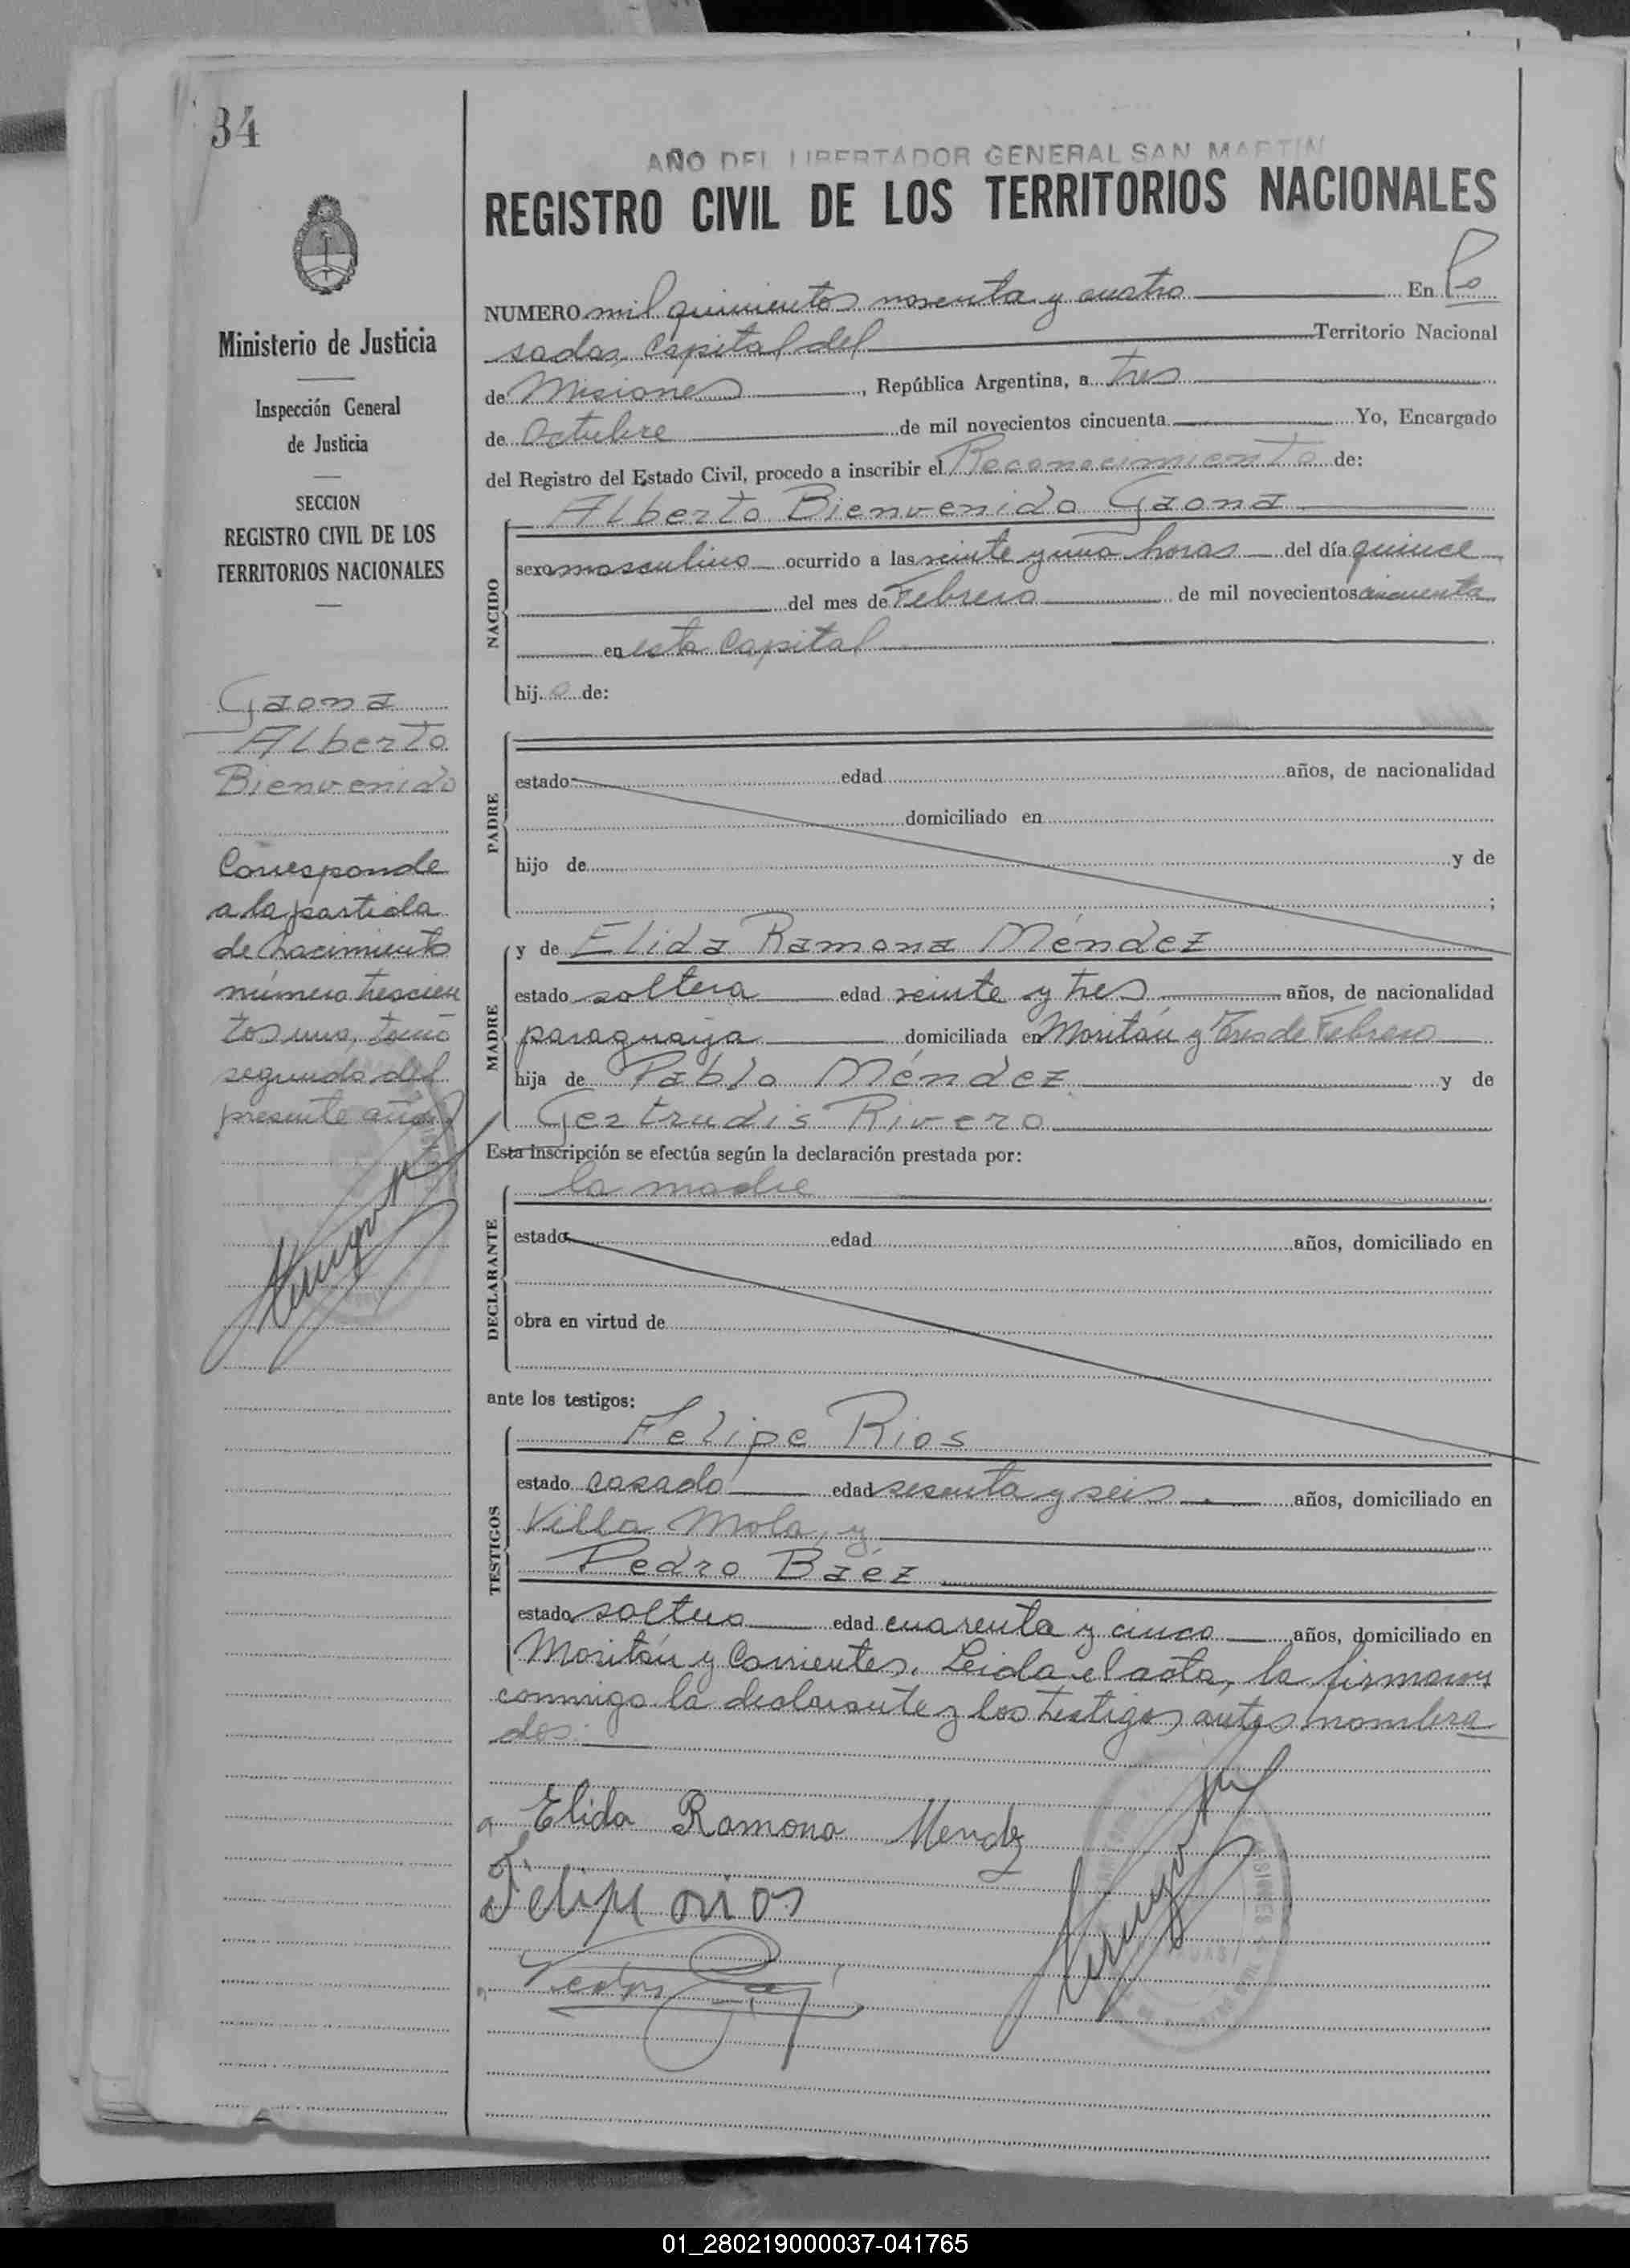 34
AÑO DEL LIBERTADOR GENERAL SAN MARTIN
REGISTRO CIVIL DE LOS TERRITORIOS NACIONALES
NUMERO mil quinientos noventa y cuatro En Po
sadas, Capital del Territorio Nacional
de Misiones, República Argentina, a tres
de Octubre de mil novecientos cincuenta Yo, Encargado
del Registro del Estado Civil, procedo a inscribir el Reconocimiento de:
Alberto Bienvenido Gaona
NACIDO
sexo masculino ocurrido a las veinte y una horas del día quince
del mes de Febrero de mil novecientos cincuenta
en esta Capital
hijo de:
PADRE
estado edad años, de nacionalidad
domiciliado en
hijo de y de
;
MADRE
y de Elida Ramona Méndez
estado soltera edad veinte y tres años, de nacionalidad
paraguaya domiciliada en Moritán y Tres de Febrero
hija de Pablo Méndez y de
Gertrudis Rivero
Esta inscripción se efectúa según la declaración prestada por:
la madre
DECLARANTE
estado edad años, domiciliado en
obra en virtud de
ante los testigos:
TESTIGOS
Felipe Rios
estado casado edad sesenta y seis años, domiciliado en
Villa Mola, y
Pedro Báez
estado soltero edad cuarenta y cinco años, domiciliado en
Moritán y Corrientes. Leida el acta, la firmaron
conmigo la declarante y los testigos antes nombra
dos.
Elida Ramona Mendz
Felipe rios
Ministerio de Justicia
Inspección General
de Justicia
SECCION
REGISTRO CIVIL DE LOS
TERRITORIOS NACIONALES
Gaona
Alberto
Bienvenido
Corresponde
a la partida
de nacimiento
número trescien
tos uno, tomo
segundo del
presente año
01_280219000037-041765